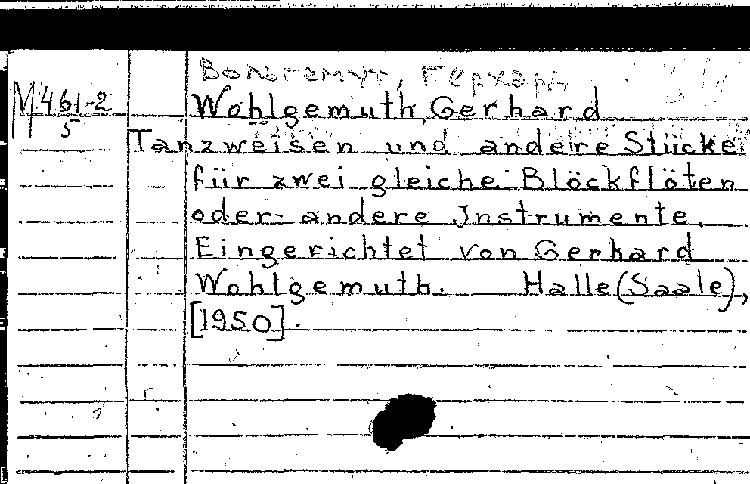 Вользгемут, Герхард
М 461-2
5
Wohlgemuth, Gerhard
Tanzweisen und andere Stücke
für zwei gleiche Blöckflöten
oder andere Instrumente.
Eingerichtet von Gerhard
Wohlgemuth. Halle (Saale),
[1950].